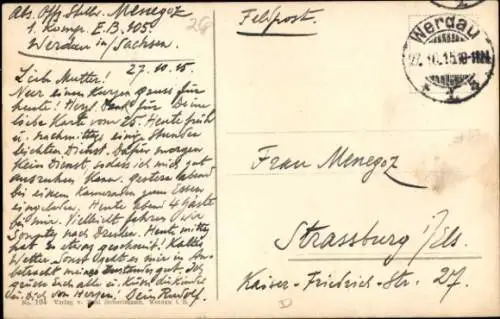 Abs. Offz. Stellv. Menegoz
1. Komp. E. B. 105.
Werdau in/Sachsen.
Feldpost
Werdau
27.10.15.10-11
27.10.15.
Liebe Mutter!
Nur einen kurzen Gruss für
heute! Herzl. Dank für Deine
liebe Karte vom 25. Heute früh
u. nachmittags einige Stunden
leichten Dienst. Dafür morgen
kein Dienst, sodass ich mich gut
ausruhen kann. Gestern Abend
bei einem Kameraden zum Essen
eingeladen. Heute Abend 4 Gäste
bei mir. Vielleicht fahren wir
Sonntag nach Dresden. Heute mittag
hat es etwas geschneit! Kaltes
Wetter. Sonst geht es mir in An-
betracht meines Zustandes gut. Ich
grüsse Euch alle u. küsse die Kinder
u. Dich von Herzen! Dein Rudolf.
Frau Menegoz
Strassburg i/Els.
Kaiser-Friedrich-Str. 27.
No. 104 Verlag v. Werdau i. S.